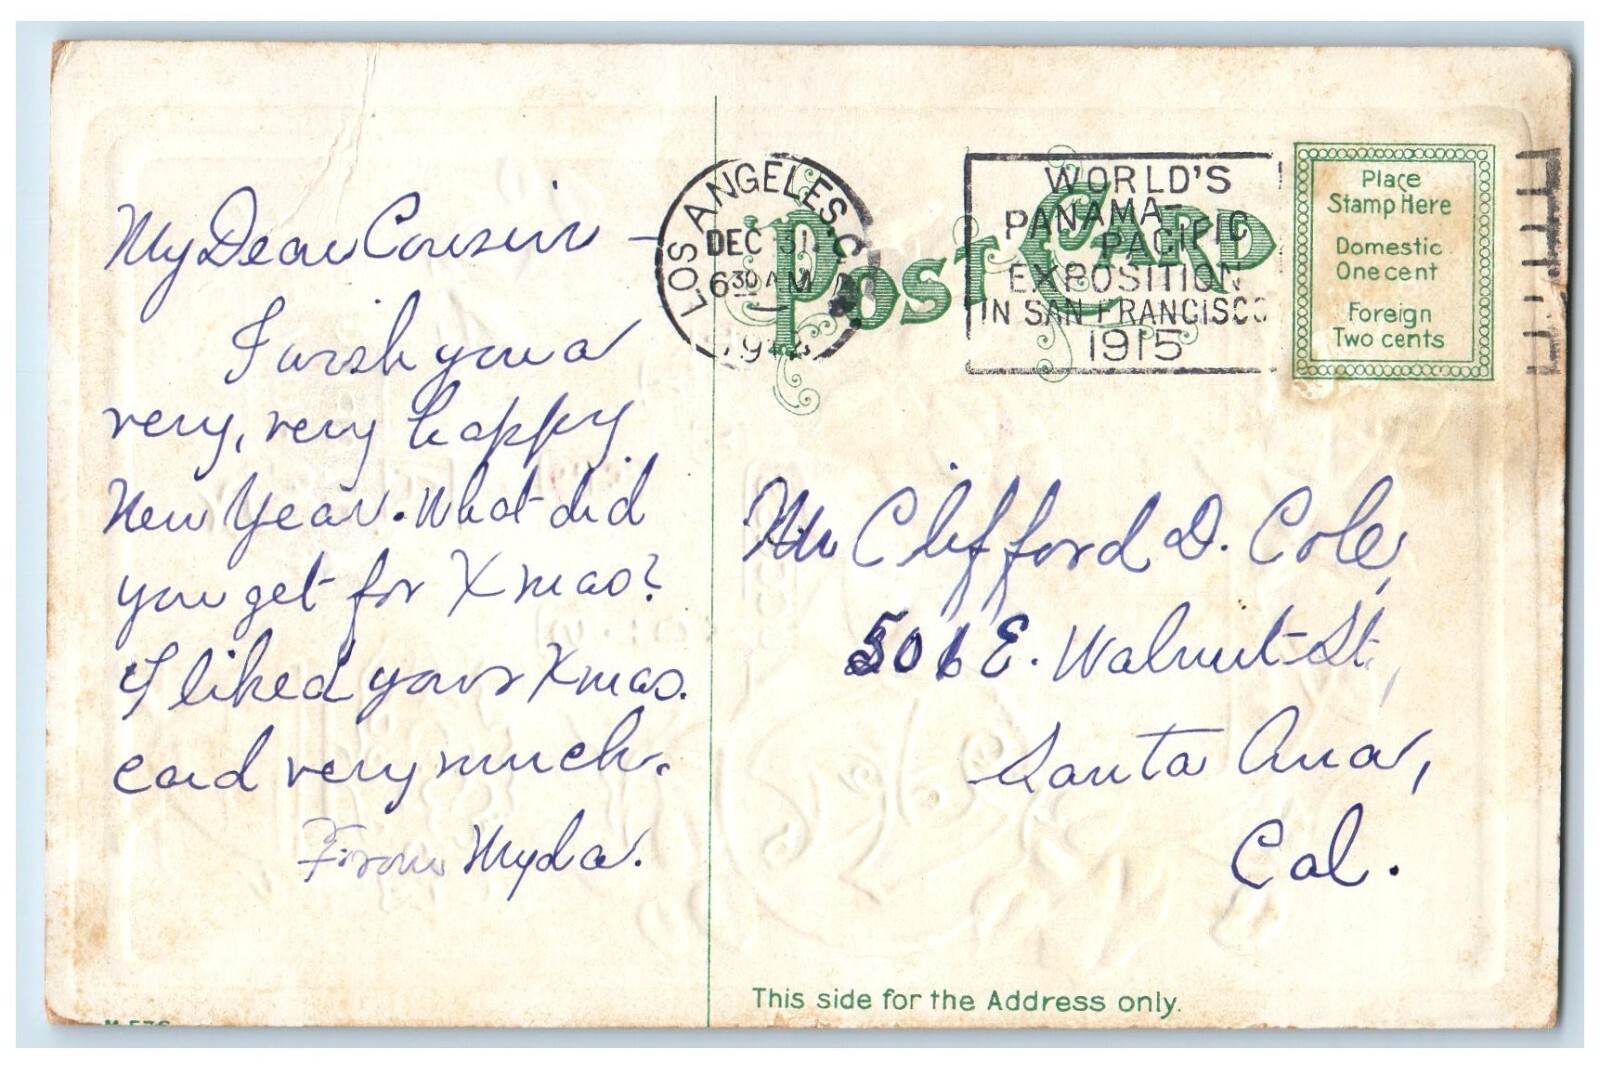 My Dear Cousin –
I wish you a
very, very happy
New Year. What did
you get for Xmas?
I liked your Xmas.
card very much.
From Myda.
LOS ANGELES, CAL.
DEC 31
6 30 AM
POST CARD
WORLD'S
PANAMA-
PACIFIC
EXPOSITION
IN SAN FRANCISCO
1915
Place
Stamp Here
Domestic
One cent
Foreign
Two cents
Mr Clifford D. Cole,
506 E. Walnut St,
Santa Ana,
Cal.
This side for the Address only.